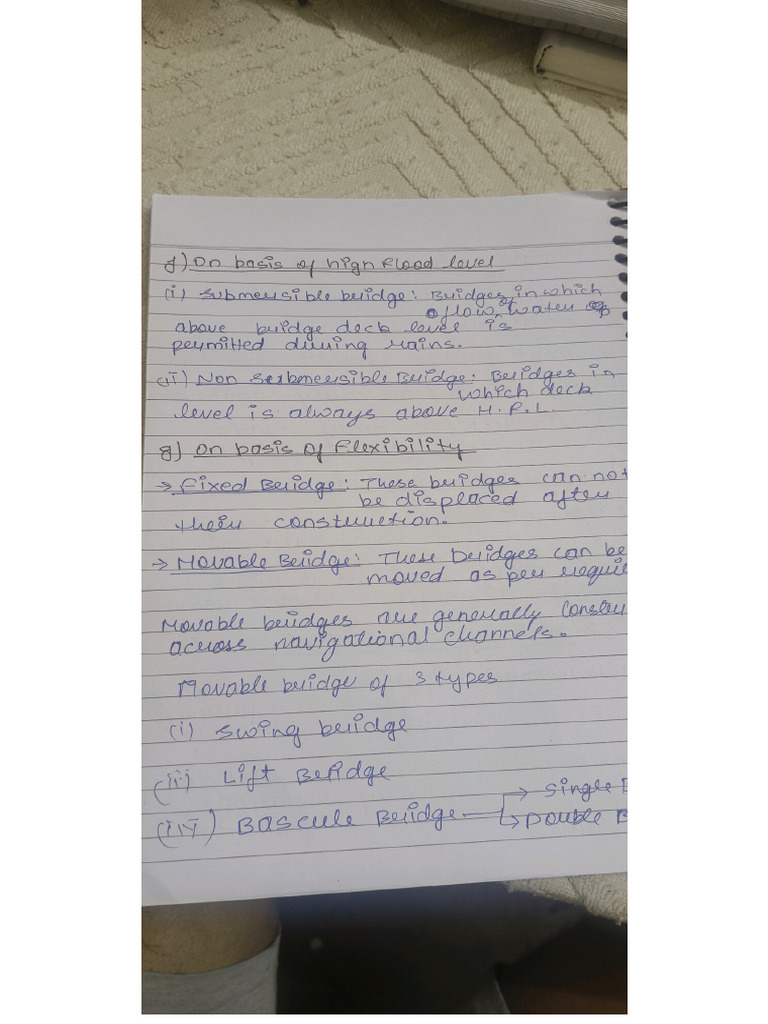 f) On basis of high flood level
(i) Submersible bridge: Bridges in which
flow of water
above bridge deck level is
permitted during rains.
(ii) Non Submersible Bridge: Bridges in
which deck
level is always above H.F.L.
g) On basis of Flexibility
→ Fixed Bridge: These bridges can not
be displaced after
their construction.
→ Movable Bridge: These bridges can be
moved as per requi
Movable bridges are generally Constru
across navigational channels.
Movable bridge of 3 types
(i) Swing bridge
(ii) Lift Bridge
(iii) Bascule Bridge → Single B
→ Double B